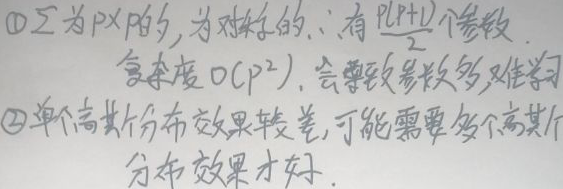 ①Σ为P×P的,为对称的,∴有 P(P+1)/2 个参数.
复杂度O(P²),会导致参数多,难学习
②单个高其斤分布效果较差,可能需要多个高其斤
分布效果才好.